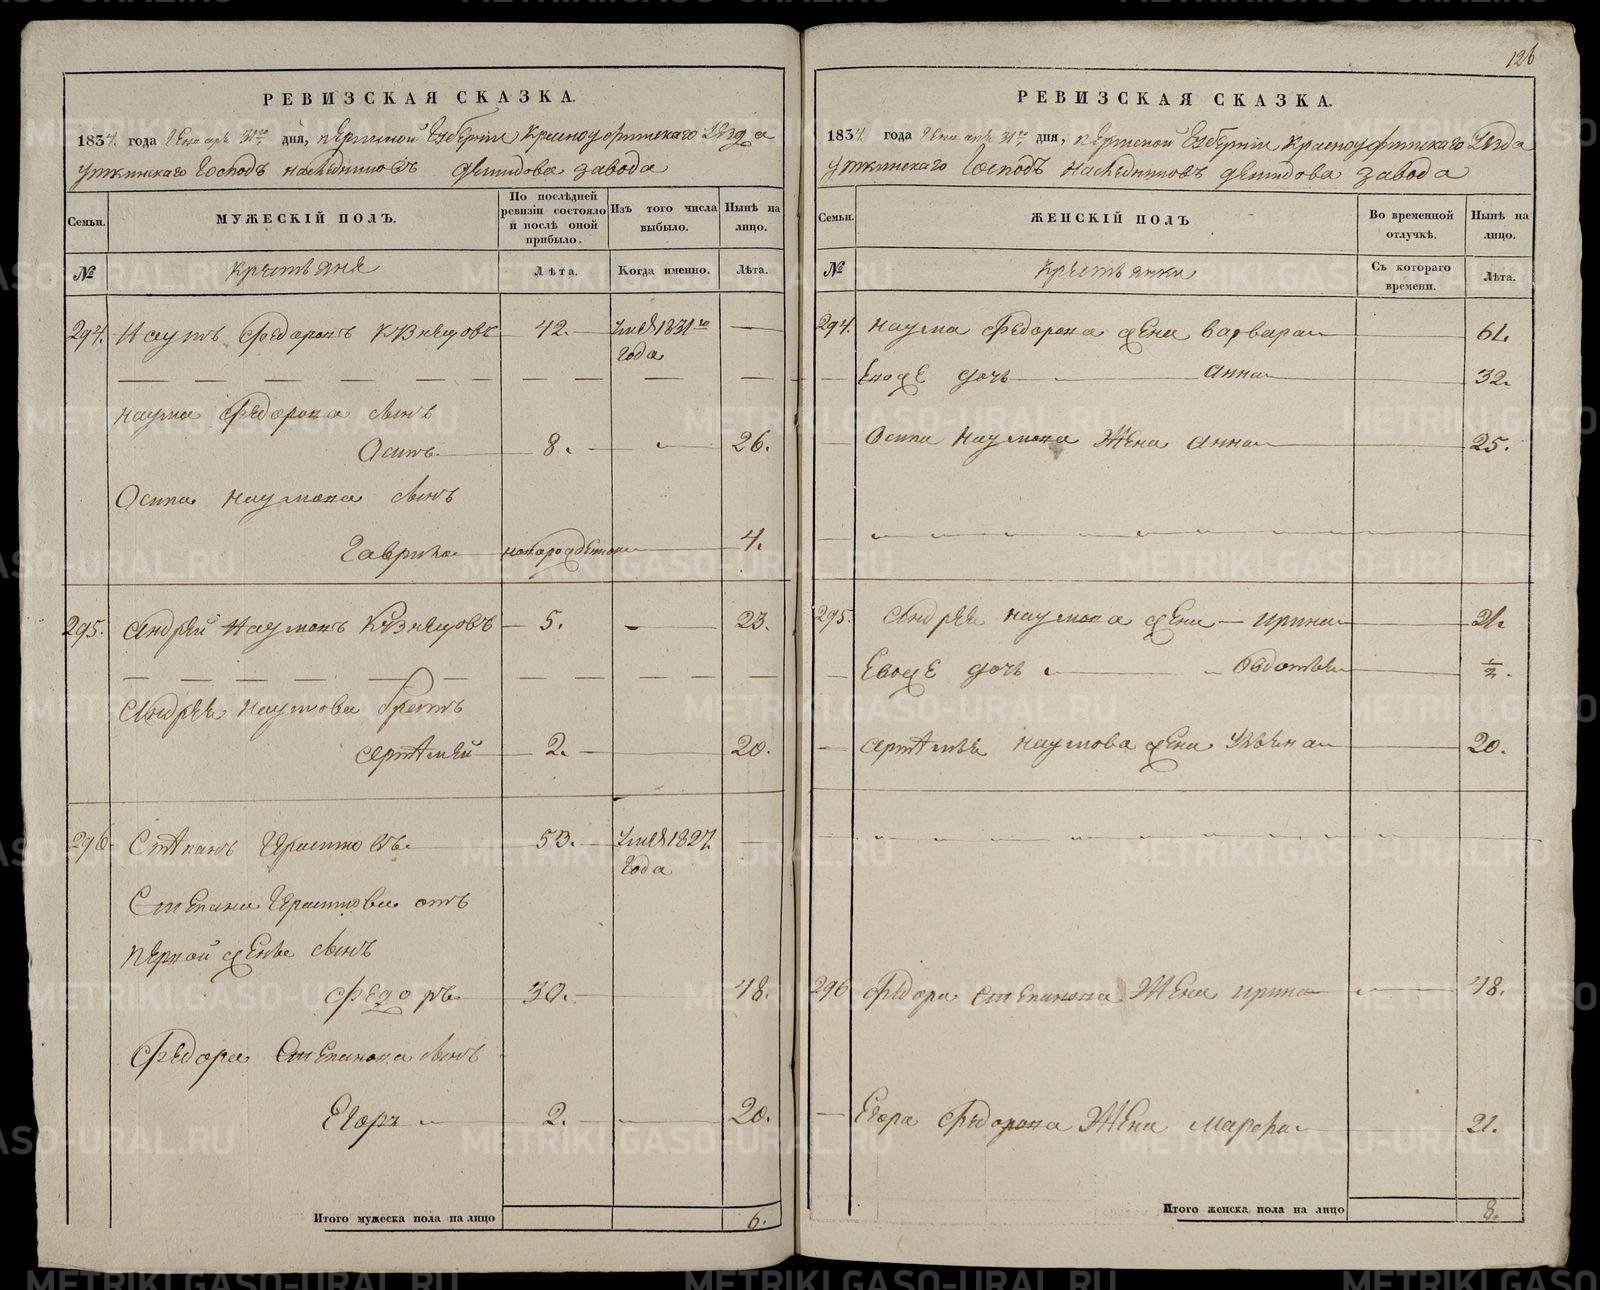 126
РЕВИЗСКАЯ СКАЗКА.
1834. года Генваря 31го дня, Пермской Губернiи Красноуфимскаго Уезда
Уткинскаго Господъ наследниковъ Демидова завода
Семьи.
МУЖЕСКIЙ ПОЛЪ.
По послѣдней ревизiи состояло и послѣ оной прибыло.
Изъ того числа выбыло.
Нынѣ на лицо.
№
Крестьяня
Лѣта.
Когда именно.
Лѣта.
294. Наумъ Федоровъ Кузнецовъ 42. Умеръ 1831го года
Наума Федорова сынъ
Осипъ 8. 26.
Осипа Наумова сынъ
Гаврило новорожденной 4.
295. Андрей Наумовъ Кузнецовъ 5. 23.
Андрея Наумова братъ
Артемей 2. 20.
296 Степанъ 53. Умеръ 1827. года
Степана отъ
первой жены сынъ
Федоръ 30. 48.
Федора Степанова сынъ
Егоръ 2. 20.
Итого мужеска пола на лицо 6.
РЕВИЗСКАЯ СКАЗКА.
1834 года Генваря 31го дня, Пермской Губернiи Красноуфимскаго Уезда
Уткинскаго Господъ Наследниковъ Демидова завода
Семьи.
ЖЕНСКIЙ ПОЛЪ
Во временной отлучкѣ.
Нынѣ на лицо.
№
Крестьянки
Съ котораго времени.
Лѣта.
294. Наума Федорова жена Варвара 61.
Ево же дочь Анна 32.
Осипа Наумова жена Анна 25.
295. Андрея Наумова жена Ирина 21.
Ево же дочь Овдотья 1/2.
Артемья Наумова жена Ульяна 20.
296 Федора Степанова жена Ирина 48.
Егора Федорова жена Марфа 21.
Итого женска пола на лицо 8.
METRIKI.GASO-URAL.RU